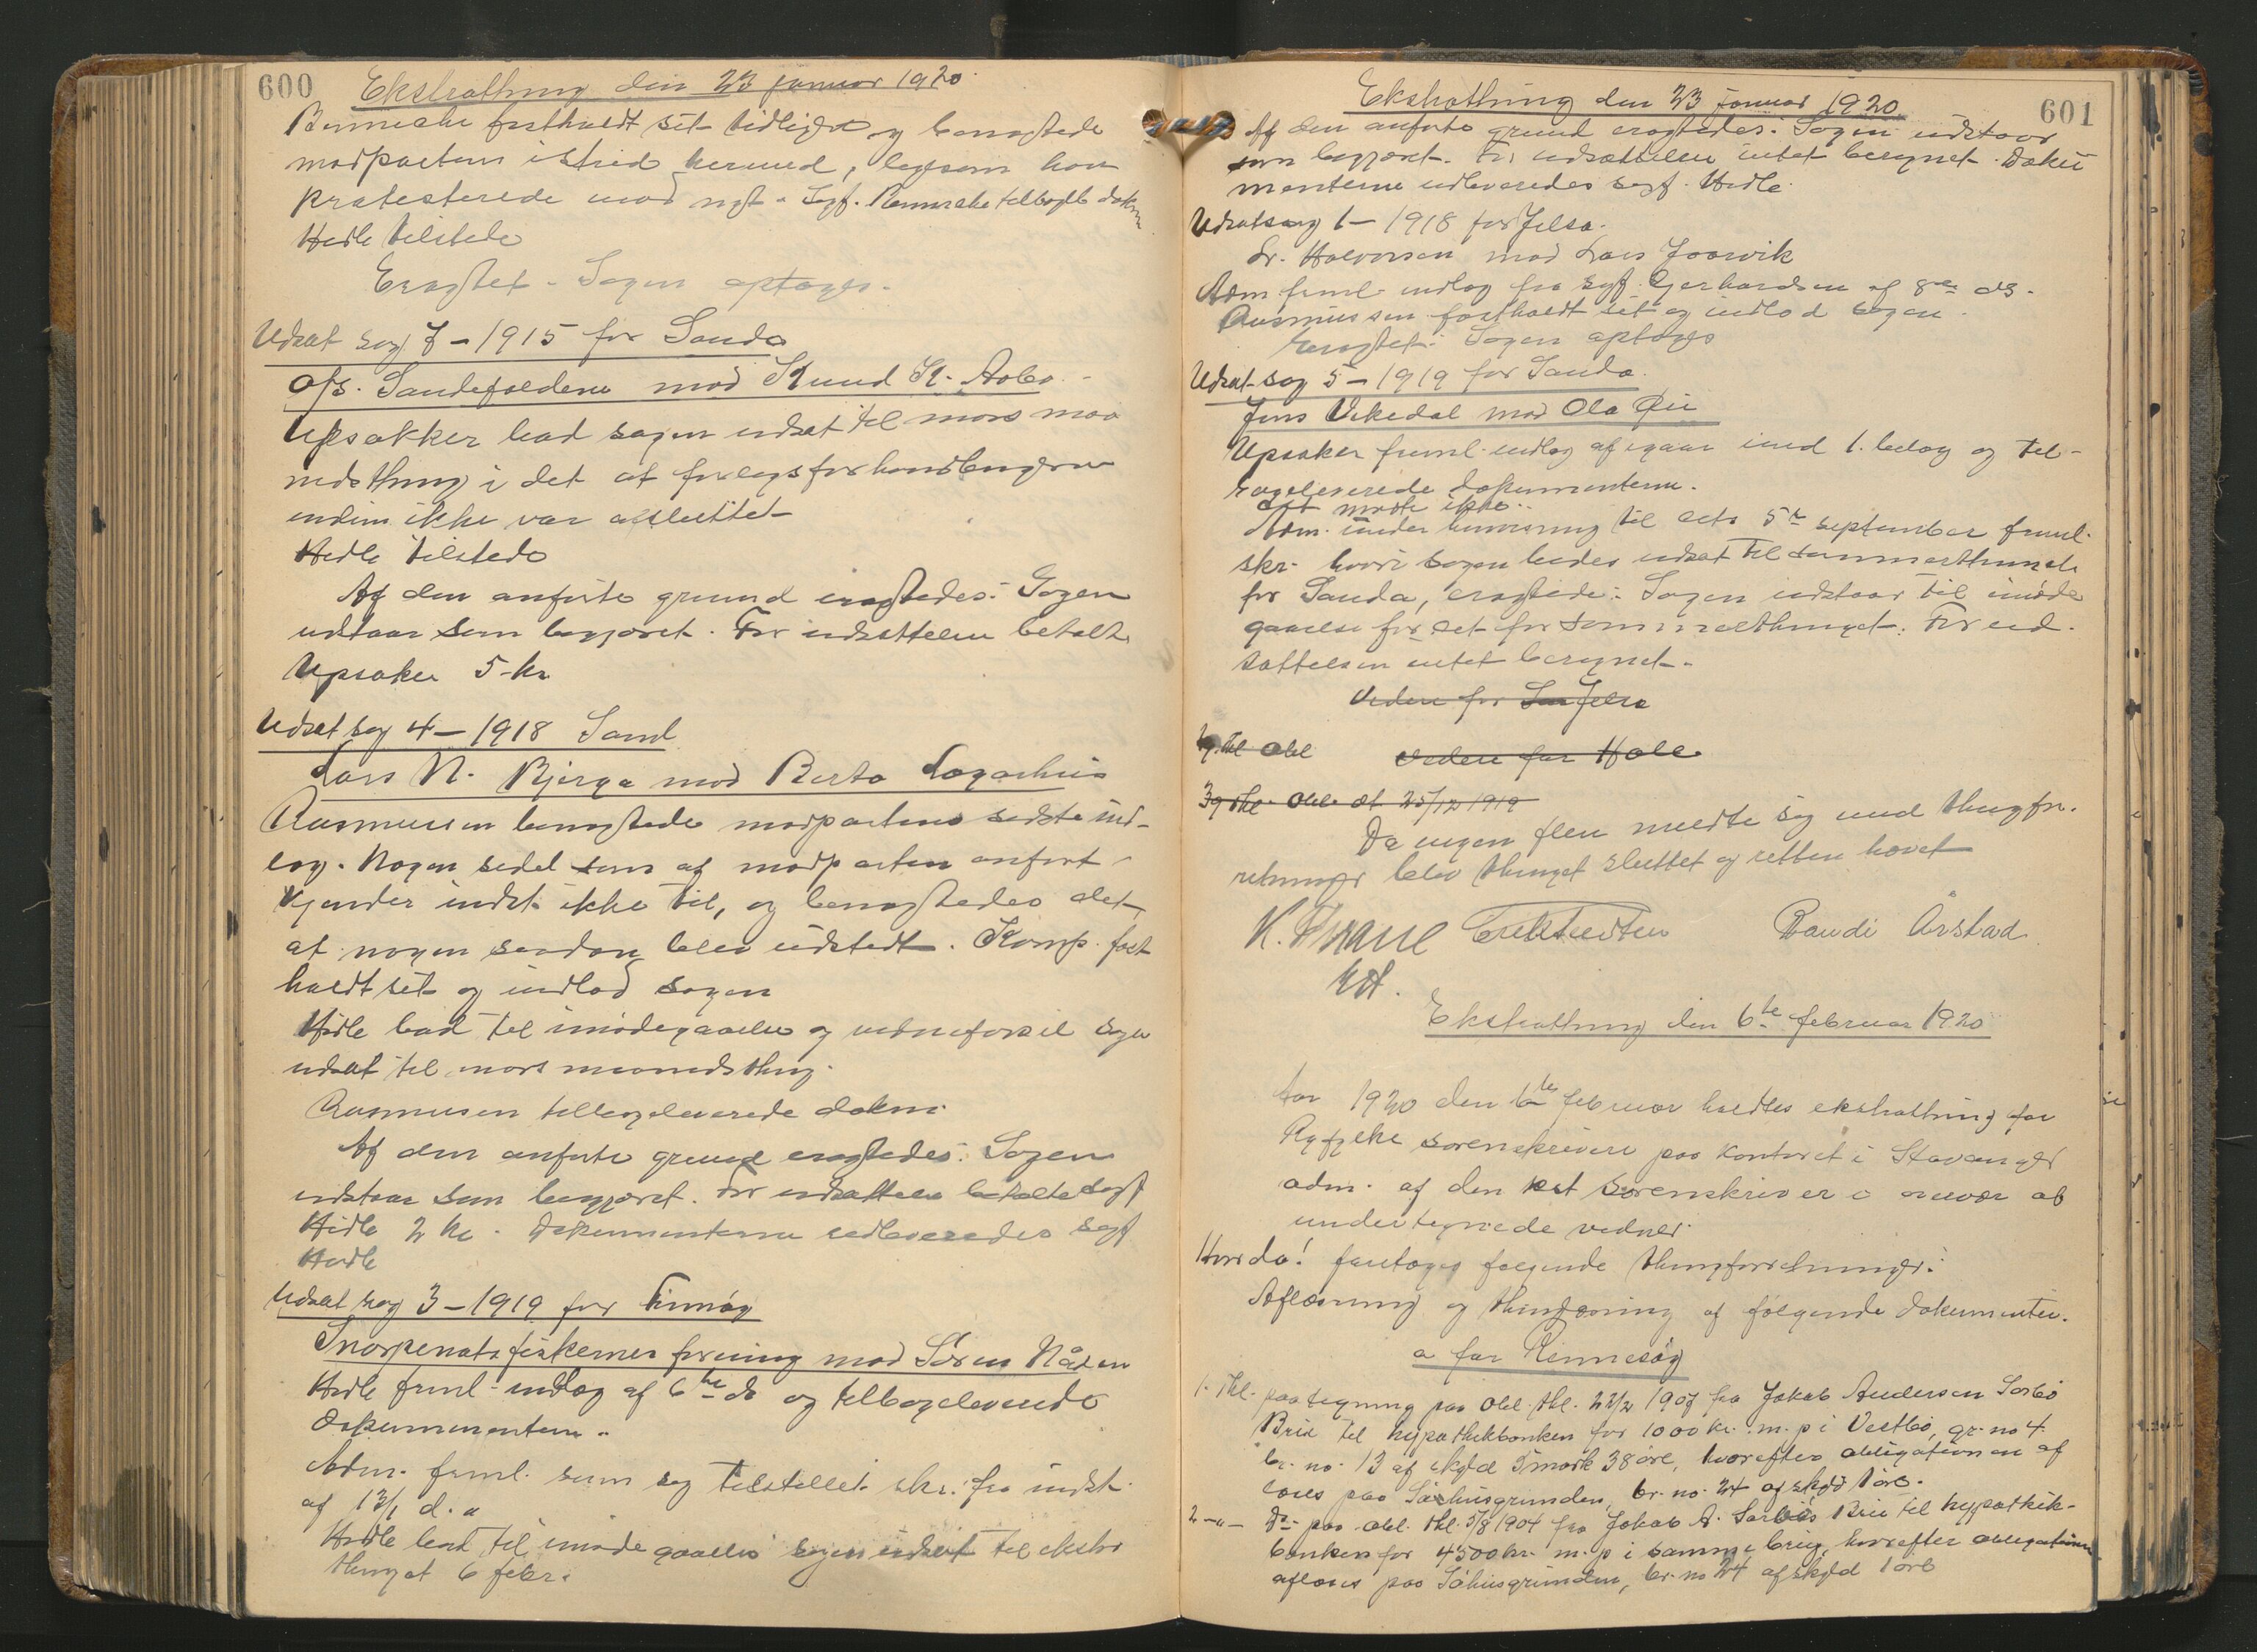 600
Ekstrathing den 23 januar 1920.
fastholdt sit tidligere og benegtede
modpartens istrid hermed, ligesom han
protesterede mod nyt. Sagf. tilbagelb dokm
Hidle tilstede
Eragtet: Sagen optages.
Udsat sag 7 – 1915 for Sauda
A/S. Saudefaldene mod Knud K. Aabø.
Upsakker bad sagen udsat til mars maa
nedsthing i det at forligsforhandlingerne
endnu ikke var afsluttet
Hidle tilstede
Af den anførte grund eragtedes: Sagen
udstaar som begjæret. For udsættelsen betalte
Upsaker 5 kr
Udsat sag 4 – 1918 Sand
Lars N. Bjerga mod Berta
Rasmussen benegtede modpartens sidste ind-
læg. Nogen sedel som af modparten anført
kjender indst. ikke til, og benegtedes det
at nogen saadan blev udstedt. Komp. fast
holdt sit og indlod sagen
Hidle bad til imødegaaelse og sagen
udsat til mars maanedsthing.
Rasmussen tilbageleverede dokm.
Af den anførte grund eragtedes: Sagen
udstaar som begjæret. For udsættelse betalte sagf
Hidle 2 kr. Dokumenterne udleveredes sagf
Hidle
Udsat sag 3 – 1919 for Finnøy
Snorpenotsfiskernes forening mod Søren Nåden
Hidle freml. indlæg af 6te ds og tilbageleverede
Dokumenterne.
Adm. freml. som sig tilstillet skr. fra indst.
af 13/1 d. a
Hidle bad til imødegaaelse sagen udsat til ekstra
thinget 6 febr.
Ekstrathing den 23 januar 1920
601
Af den anførte grund eragtedes: Sagen udstaar
som begjæret. For udsættelsen intet beregnet. Doku
menterne udleveredes sagf. Hidle.
Udsatsag 1 – 1918 for Jelsa.
Dr. Halvorsen mod Lars Foorvik
Adm freml. indlæg fra sagf. Gerhardsen af 8de ds.
Rasmussen fastholdt sit og indlod sagen.
Eragtet: Sagen optages
Udsat sag 5 – 1919 for Sauda.
Jens Vikedal mod Ola Øie
Upsaker freml. indlæg af igaar med 1. bilag og til-
bageleverede dokumenterne.
mødte ikke.
Adm. under henvisning til acts 5te september freml.
skr. hvori sagen bedes udsat til sommerthinget
for Sauda, eragtede: Sagen udstaar til imøde
gaaelse for det for sommerthinget. For ud-
sættelsen intet beregnet.
Videre for Jelsa
tkl obl videre for Hole
39 tkl. Obl. dt 25/12 1919
Da ingen flere meldte sig med thingfor-
retninger blev thinget sluttet og retten hævet
K. Thrane Randi Årstad
Kst.
Ekstrathing den 6te februar 1920
Aar 1920 den 6te februar holdtes ekstrathing for
Ryfylke sorenskriveri paa kontoret i Stavanger
adm. af den kst sorenskriver i nærvær af
undertegnede vidner.
Hvorda! foretoges følgende thingforretninger:
Aflæsning og thinglæsning af følgende dokumenter.
a for Rennesøy
1. Tkl. paategning paa obl. tkl. 22/2 1907 fra Jakob Andersen Sørbø
Brix til hypothekbanken for 1000 kr. m. p i Vestbø, gr. no 4
br. no. 13 af skyld 5 mark 38 øre, hvorefter obligationen af
løses paa Sjøhusgrunden, br. no. 24 af skyld 1 øre.
2 –"– Do paa obl. tkl. 5/8 1904 fra Jakob A. Sørbøs Brix til hypothek-
banken for 4500 kr. m. p i samme brug, hvorefter obligationen
afløses paa Sjøhusgrunden, br. no 24 af skyld 1 øre